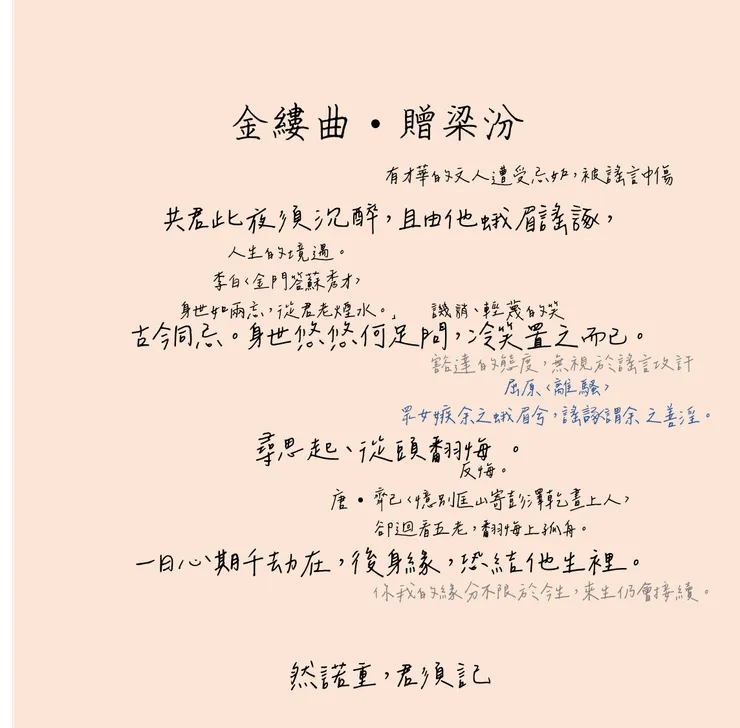 金縷曲•贈梁汾
有才華的文人遭受忌妒，被謠言中傷
共君此夜須沉醉，且由他蛾眉謠諑，
人生的境遇。
李白〈金門答蘇秀才〉
身世如兩忘，從君老煙水。」 譏誚、輕蔑的笑
古今同忌。身世悠悠何足問，冷笑置之而已。
豁達的態度，無視於謠言攻訐
屈原〈離騷〉
眾女嫉余之蛾眉兮，謠諑謂余之善淫。
尋思起、從頭翻悔。
反悔。
唐•齊己〈憶別匡山寄彭澤乾晝上人〉
卻迴看五老，翻悔上孤舟。
一日心期千劫在，後身緣，恐結他生裡。
你我的緣分不限於今生，來生仍會接續。
然諾重，君須記